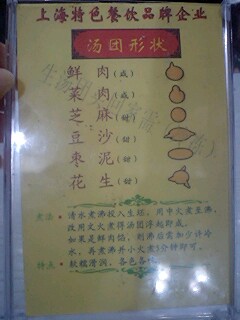 上海特色餐饮品牌企业
汤团形状
鲜 肉(咸)
菜 肉(咸)
芝 麻(甜)
豆 沙(甜)
枣 泥(甜)
花 生(甜)
煮法: 清水煮沸收入生坯，用中火煮至沸，
改用文火煮得汤团浮起即成。
如果是鲜肉馅，则沸后需加少许冷
水，再煮沸并小火煮5分钟即可。
特点: 软糯滑润，各色各